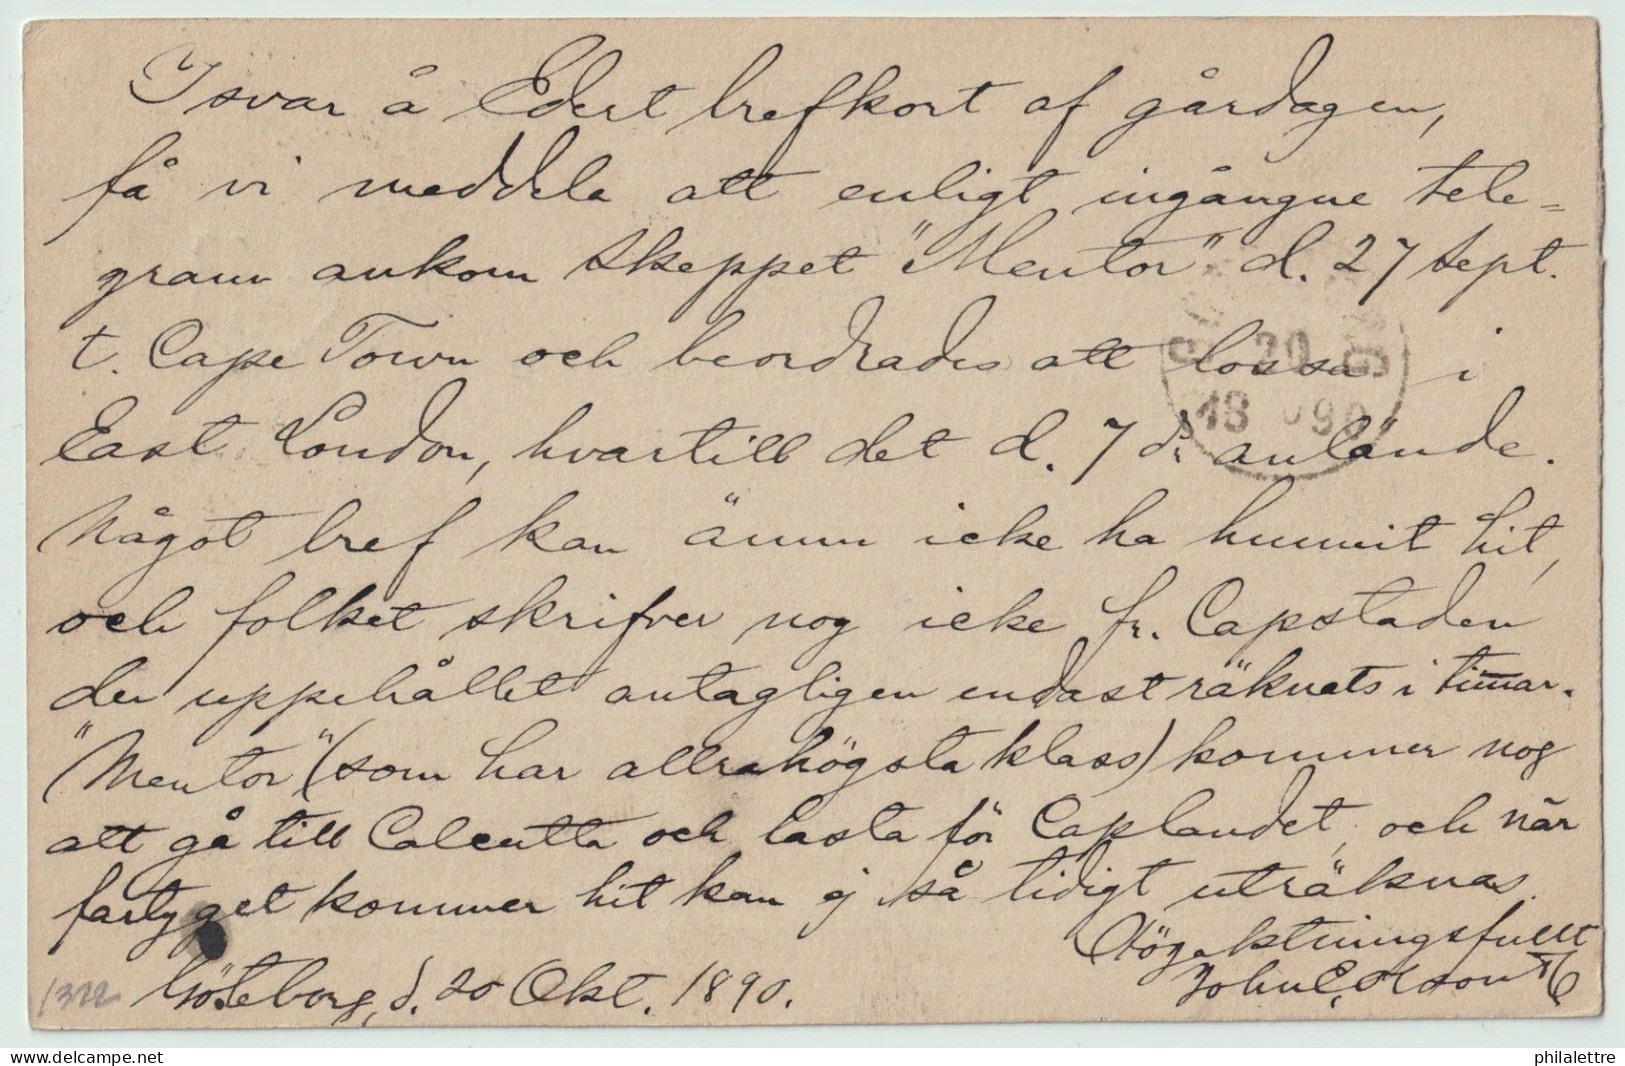 I svar å Edert brefkort af gårdagen,
få vi meddela att enligt ingångne tele=
gram ankom skeppet "Mentor" d. 27 sept.
t. Cape Town och beordrades att lossa i
East London, hvartill det d. 7 ds anlände.
Något bref kan ännu icke ha hunnit hit,
och folket skrifver nog icke fr. Capstaden
der uppehållet antagligen endast räknats i timar.
"Mentor" (som har allrahögsta klass) kommer nog
att gå till Calcutta och lasta för Caplandet, och när
fartyget kommer hit kan ej så tidigt uträknas.
Högaktningsfullt
Göteborg, d. 20 Okt. 1890.
John E. Olson
1322
20
18 90
philalettre